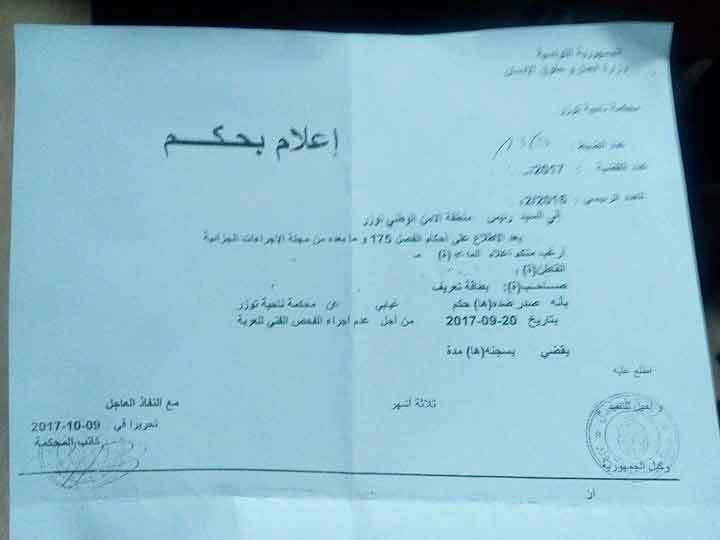 الجمهورية التونسية
وزارة العدل و حقوق الإنسان
محكمة ناحية توزر
إعلام بحكم
عدد القضية : 2017/
العدد الرئيسي : 2/2016
إلى السيد رئيس منطقة الامن الوطني توزر
بعد الاطلاع على أحكام الفصل 175 و ما بعده من مجلة الاجراءات الجزائية
أرغب منكم اعلام
القاطن(ة) :
صاحب(ة): بطاقة تعريف
بأنه صدر ضده(ها) حكم غيابي عن محكمة ناحية توزر
بتاريخ 20-09-2017 من أجل عدم اجراء الفحص الفني للعربة
يقضي بسجنه(ها) مدة
اطلع عليه
ثلاثة أشهر
مع النفاذ العاجل
تحريرا في 09-10-2017
كاتب المحكمة
وكيل الجمهورية